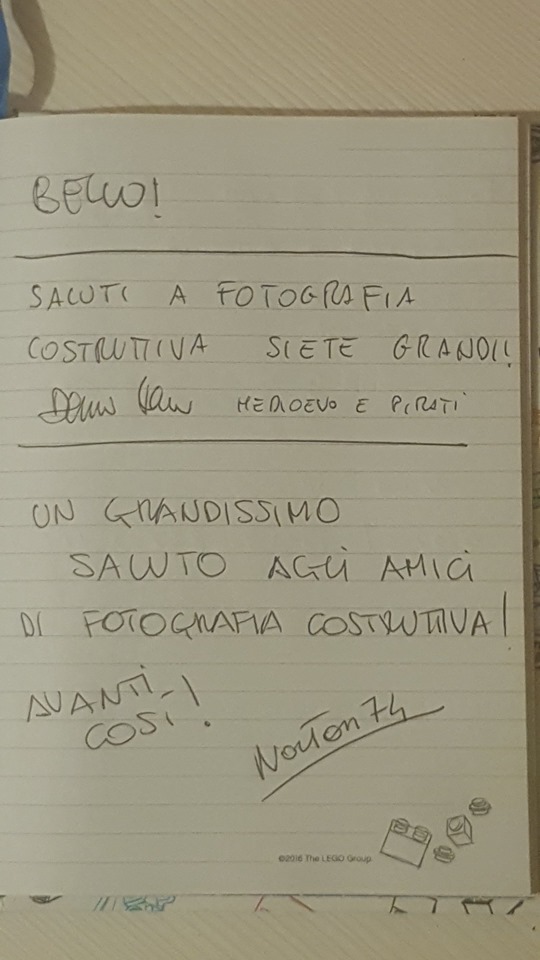 BELLO!
SALUTI A FOTOGRAFIA
COSTRUTTIVA SIETE GRANDI!
MEDIOEVO E PIRATI
UN GRANDISSIMO
SALUTO AGLI AMICI
DI FOTOGRAFIA COSTRUTTIVA!
AVANTI
COSÌ!
Norton74
©2016 The LEGO Group.